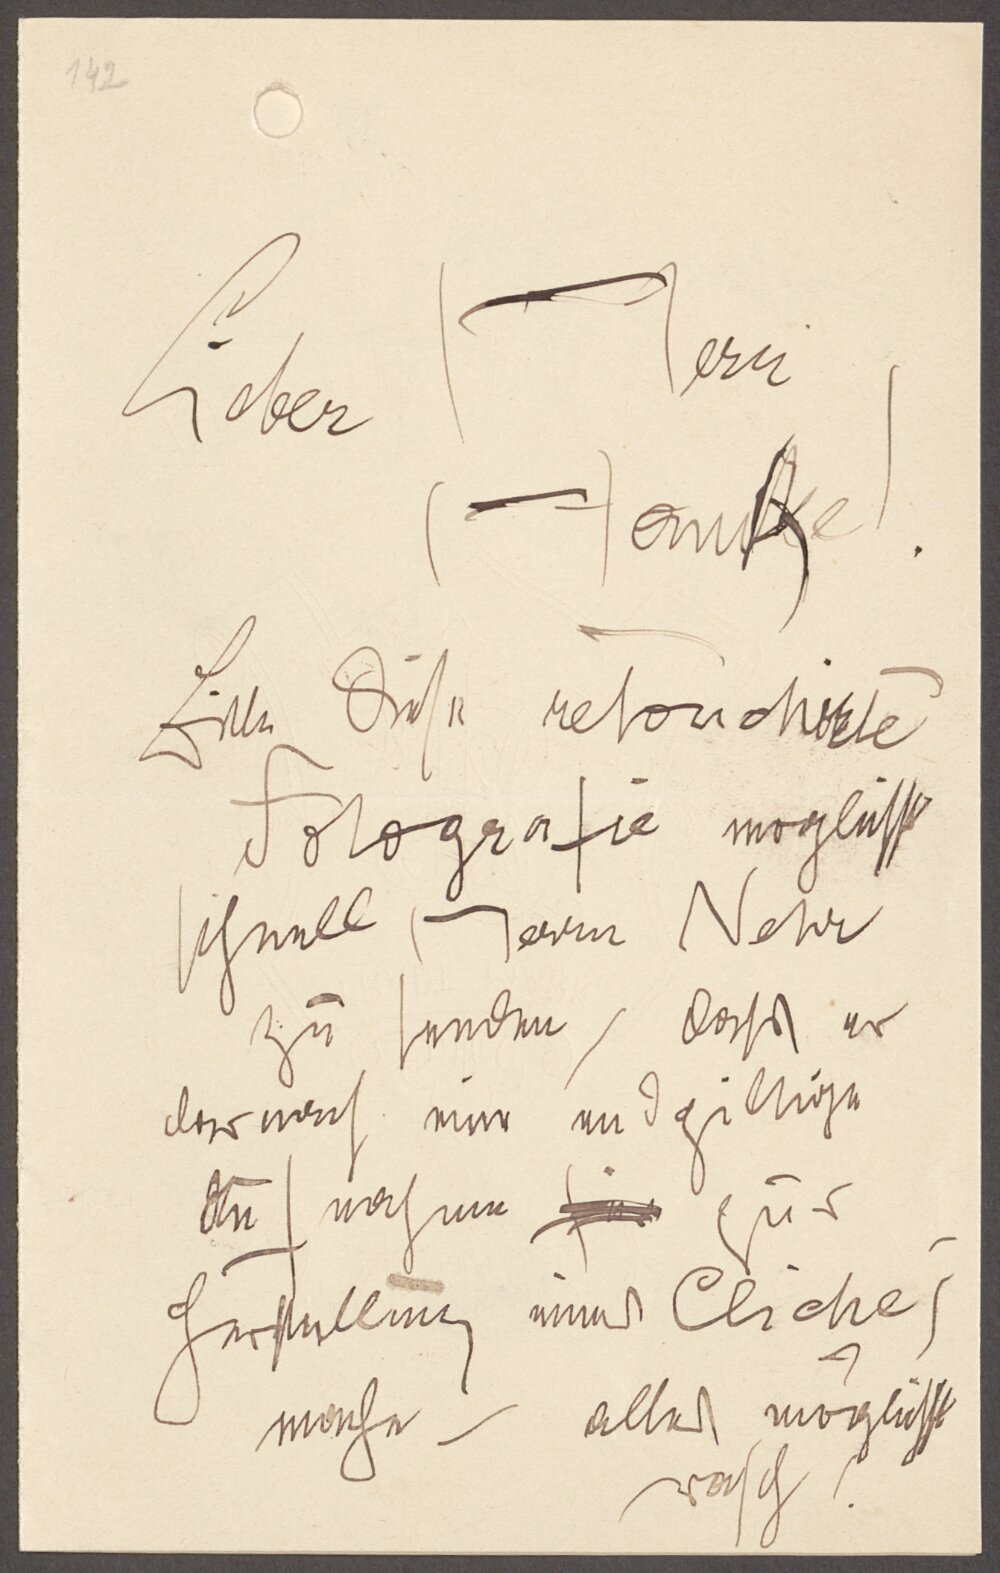 142
Lieber Herr
Hanke!
Bitte diese retouchirte
Fotografie möglichst
schnell Herrn Nehr
zu senden, dass er
darnach eine endgiltige
Aufnahme zur
Herstellung eines Clichés
mache – alles möglichst
rasch!